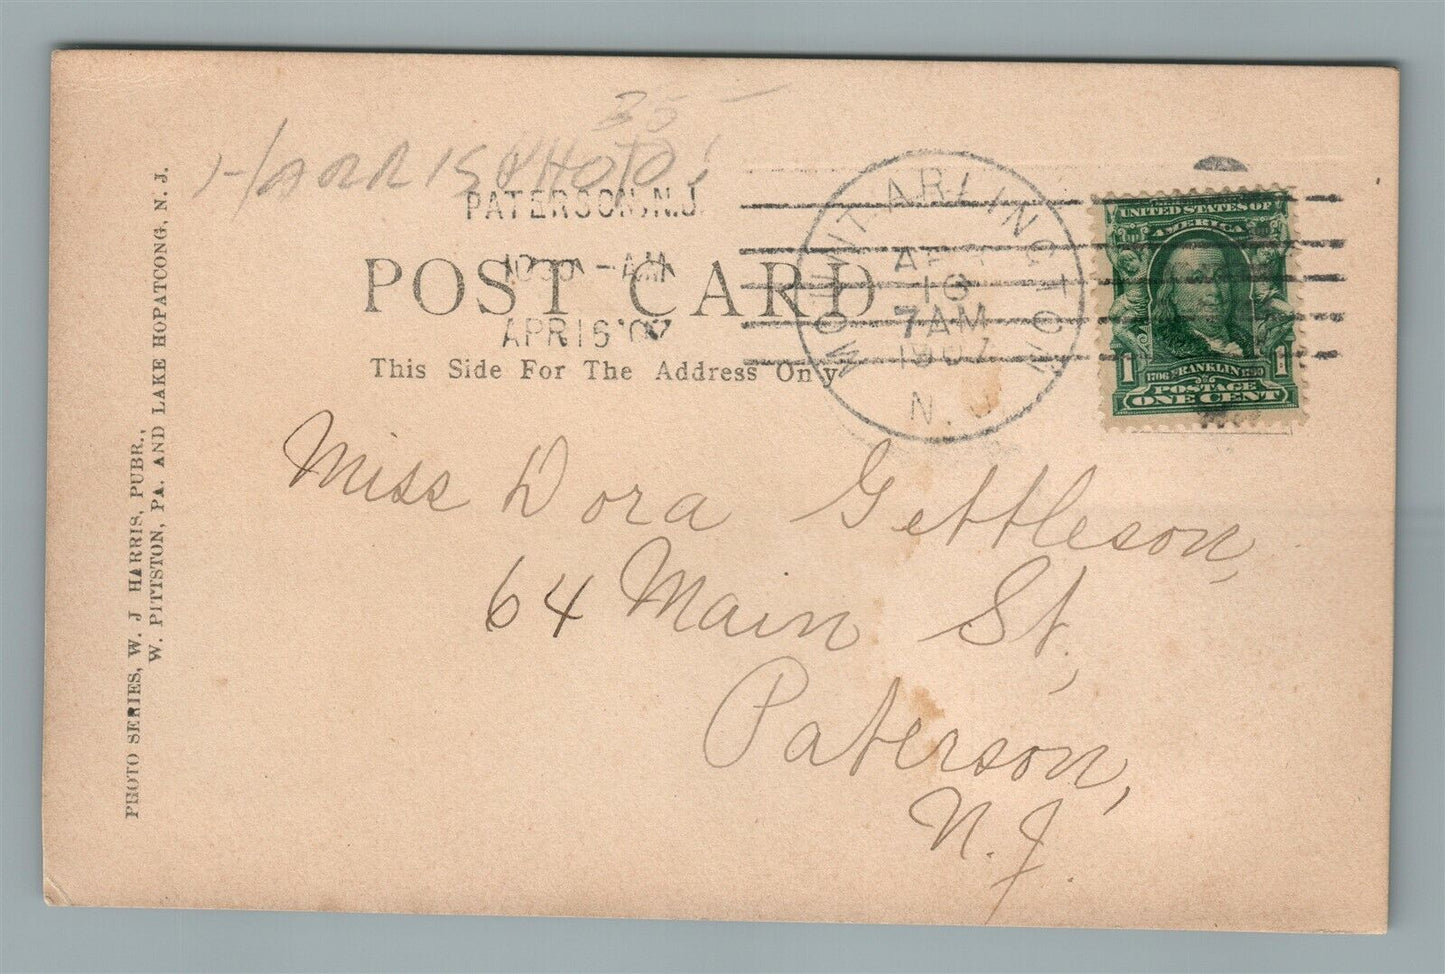 35 –
HARRIS PHOTO!
PATERSON, N.J.
-AM
APR 16 '07
MOUNT ARLINGTON
7 AM
1907
N. J.
UNITED STATES OF
AMERICA
1 1706 FRANKLIN 1790 1
POSTAGE
ONE CENT
POST CARD
This Side For The Address Only
Miss Dora Gettleson,
64 Main St.,
Paterson,
N. J.
PHOTO SERIES, W. J HARRIS, PUBR.,
W. PITTSTON, PA. AND LAKE HOPATCONG, N. J.